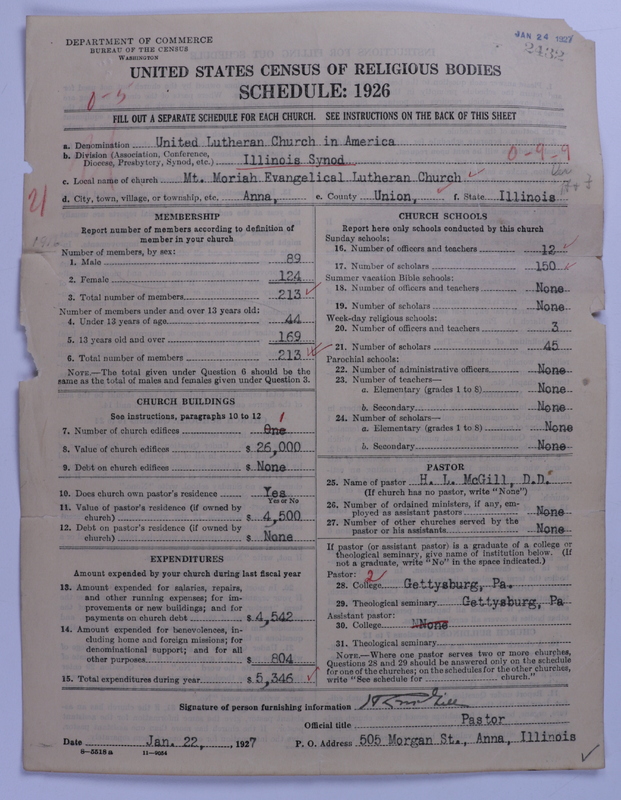 DEPARTMENT OF COMMERCE
BUREAU OF THE CENSUS
WASHINGTON
JAN 24 1927
2432
UNITED STATES CENSUS OF RELIGIOUS BODIES
SCHEDULE: 1926
0-5
FILL OUT A SEPARATE SCHEDULE FOR EACH CHURCH. SEE INSTRUCTIONS ON THE BACK OF THIS SHEET
a. Denomination United Lutheran Church in America
b. Division (Association, Conference,
Diocese, Presbytery, Synod, etc.) Illinois Synod
0-9-9
c. Local name of church Mt. Moriah Evangelical Lutheran Church
d. City, town, village, or township, etc. Anna, e. County Union, f. State Illinois
21
MEMBERSHIP
Report number of members according to definition of
member in your church
Number of members, by sex:
1. Male 89
2. Female 124
3. Total number of members 213
Number of members under and over 13 years old:
4. Under 13 years of age 44
5. 13 years old and over 169
6. Total number of members 213
NOTE.—The total given under Question 6 should be the
same as the total of males and females given under Question 3.
CHURCH BUILDINGS
See instructions, paragraphs 10 to 12
7. Number of church edifices One 1
8. Value of church edifices $ 26,000
9. Debt on church edifices $ None
10. Does church own pastor's residence Yes
Yes or No
11. Value of pastor's residence (if owned by
church) $ 4,500
12. Debt on pastor's residence (if owned by
church) $ None
EXPENDITURES
Amount expended by your church during last fiscal year
13. Amount expended for salaries, repairs,
and other running expenses; for im-
provements or new buildings; and for
payments on church debt $ 4,542
14. Amount expended for benevolences, in-
cluding home and foreign missions; for
denominational support; and for all
other purposes $ 804
15. Total expenditures during year $ 5,346
CHURCH SCHOOLS
Report here only schools conducted by this church
Sunday schools:
16. Number of officers and teachers 12
17. Number of scholars 150
Summer vacation Bible schools:
18. Number of officers and teachers None
19. Number of scholars None
Week-day religious schools:
20. Number of officers and teachers 3
21. Number of scholars 45
Parochial schools:
22. Number of administrative officers None
23. Number of teachers—
a. Elementary (grades 1 to 8) None
b. Secondary None
24. Number of scholars—
a. Elementary (grades 1 to 8) None
b. Secondary None
PASTOR
25. Name of pastor H. L. McGill, D.D.
(If church has no pastor, write "None")
26. Number of ordained ministers, if any, em-
ployed as assistant pastors None
27. Number of other churches served by the
pastor or his assistants None
If pastor (or assistant pastor) is a graduate of a college or
theological seminary, give name of institution below. (If
not a graduate, write "No" in the space indicated.)
Pastor: 2
28. College Gettysburg, Pa.
29. Theological seminary Gettysburg, Pa
Assistant pastor:
30. College None
31. Theological seminary
NOTE.—Where one pastor serves two or more churches,
Questions 28 and 29 should be answered only on the schedule
for one of the churches; on the schedules for the other churches,
write "See schedule for church."
Signature of person furnishing information H L McGill
Official title Pastor
Date Jan. 22, 1927 P. O. Address 505 Morgan St., Anna, Illinois
8-5518 a 11-9054